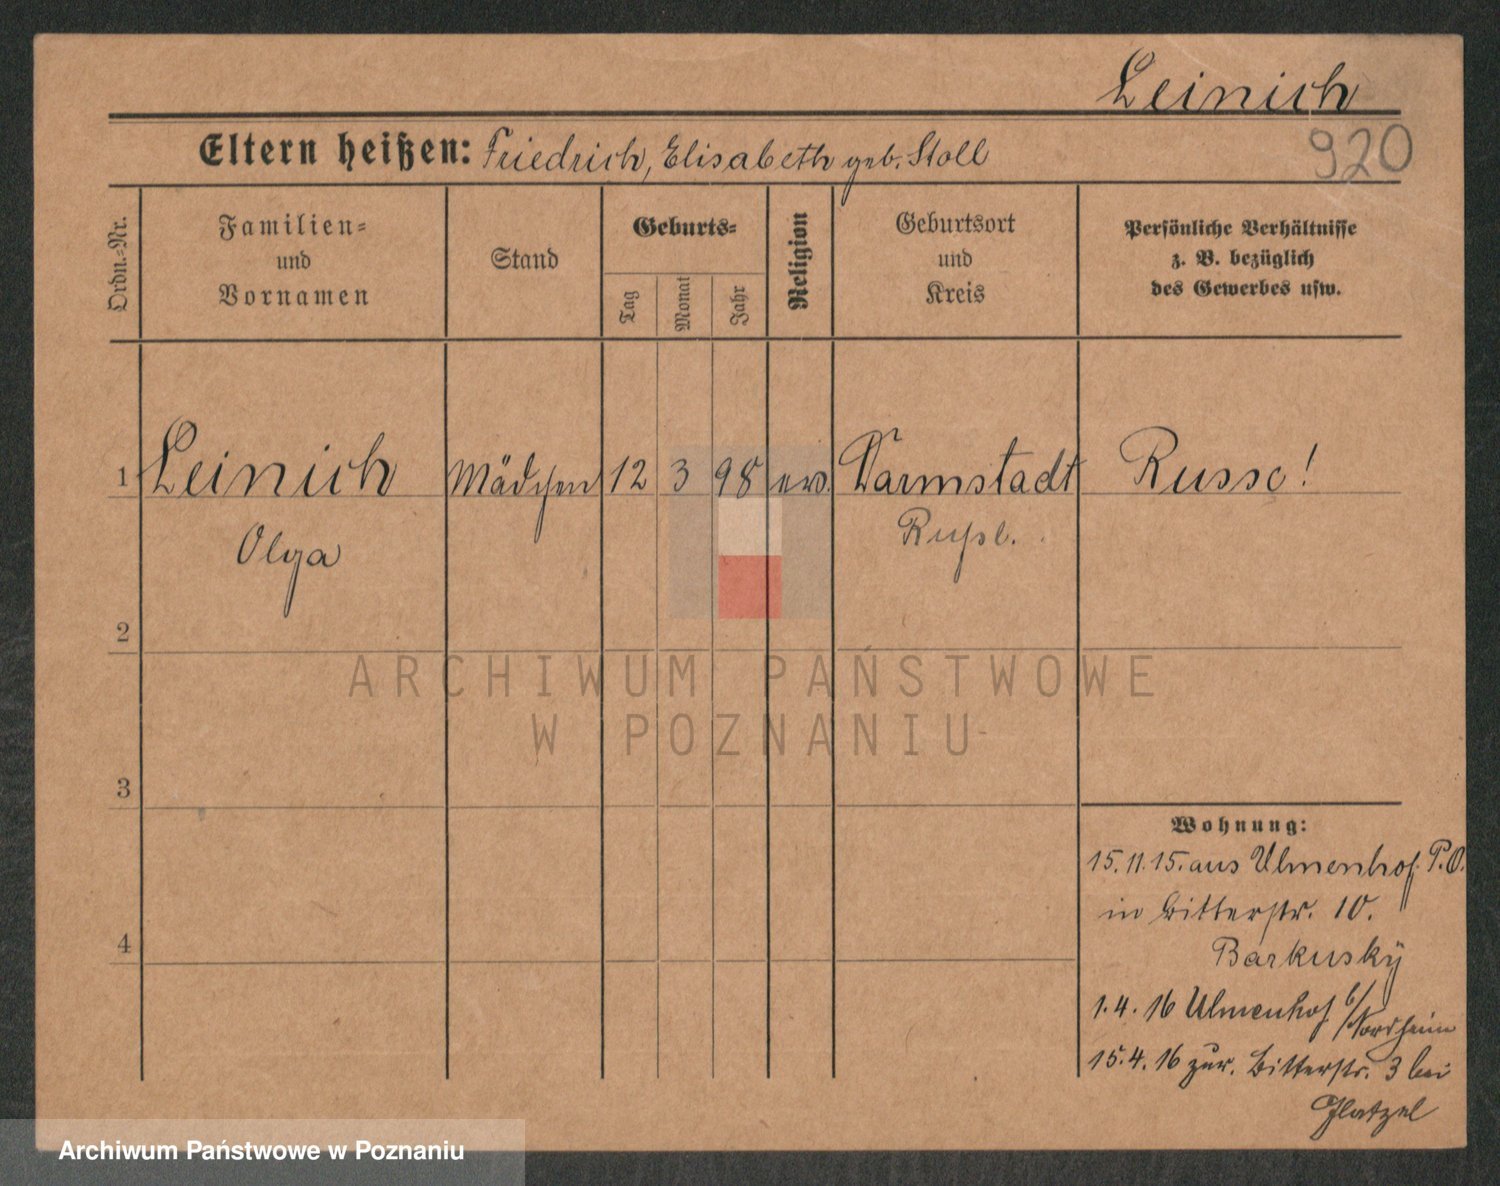 Leinich
920
Eltern heißen: Friedrich, Elisabeth geb. Stoll
Ordn.-Nr.
Familien- und Vornamen
Stand
Geburts-
Tag
Monat
Jahr
Religion
Geburtsort und Kreis
Persönliche Verhältnisse
z. B. bezüglich
des Gewerbes usw.
1 Leinich Mädchen 12 3 98 ev. Darmstadt Russe!
Olga Rußl.
2
ARCHIWUM PAŃSTWOWE
W POZNANIU
3
Wohnung:
15.11.15. aus Ulmenhof P.O.
in Bitterstr. 10.
Barkusky
4
1.4.16 Ulmenhof b/Nordheim
15.4.16 zur. Bitterstr. 3 bei
Glatzel
Archiwum Państwowe w Poznaniu